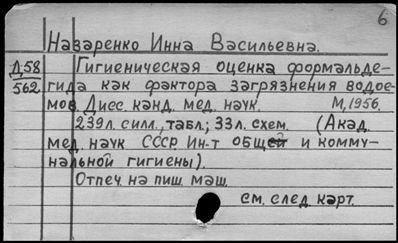 6
Назаренко Инна Васильевна.
Д58
562
Гигиеническая оценка формальде-
гида как фактора загрязнения водое-
мов. Дисс. канд. мед. наук. М, 1956.
239л. с илл., табл.; 33л. схем. (Акад.
мед. наук СССР. Ин-т общей и комму-
нальной гигиены).
Отпеч. на пиш. маш.
см. след. карт.